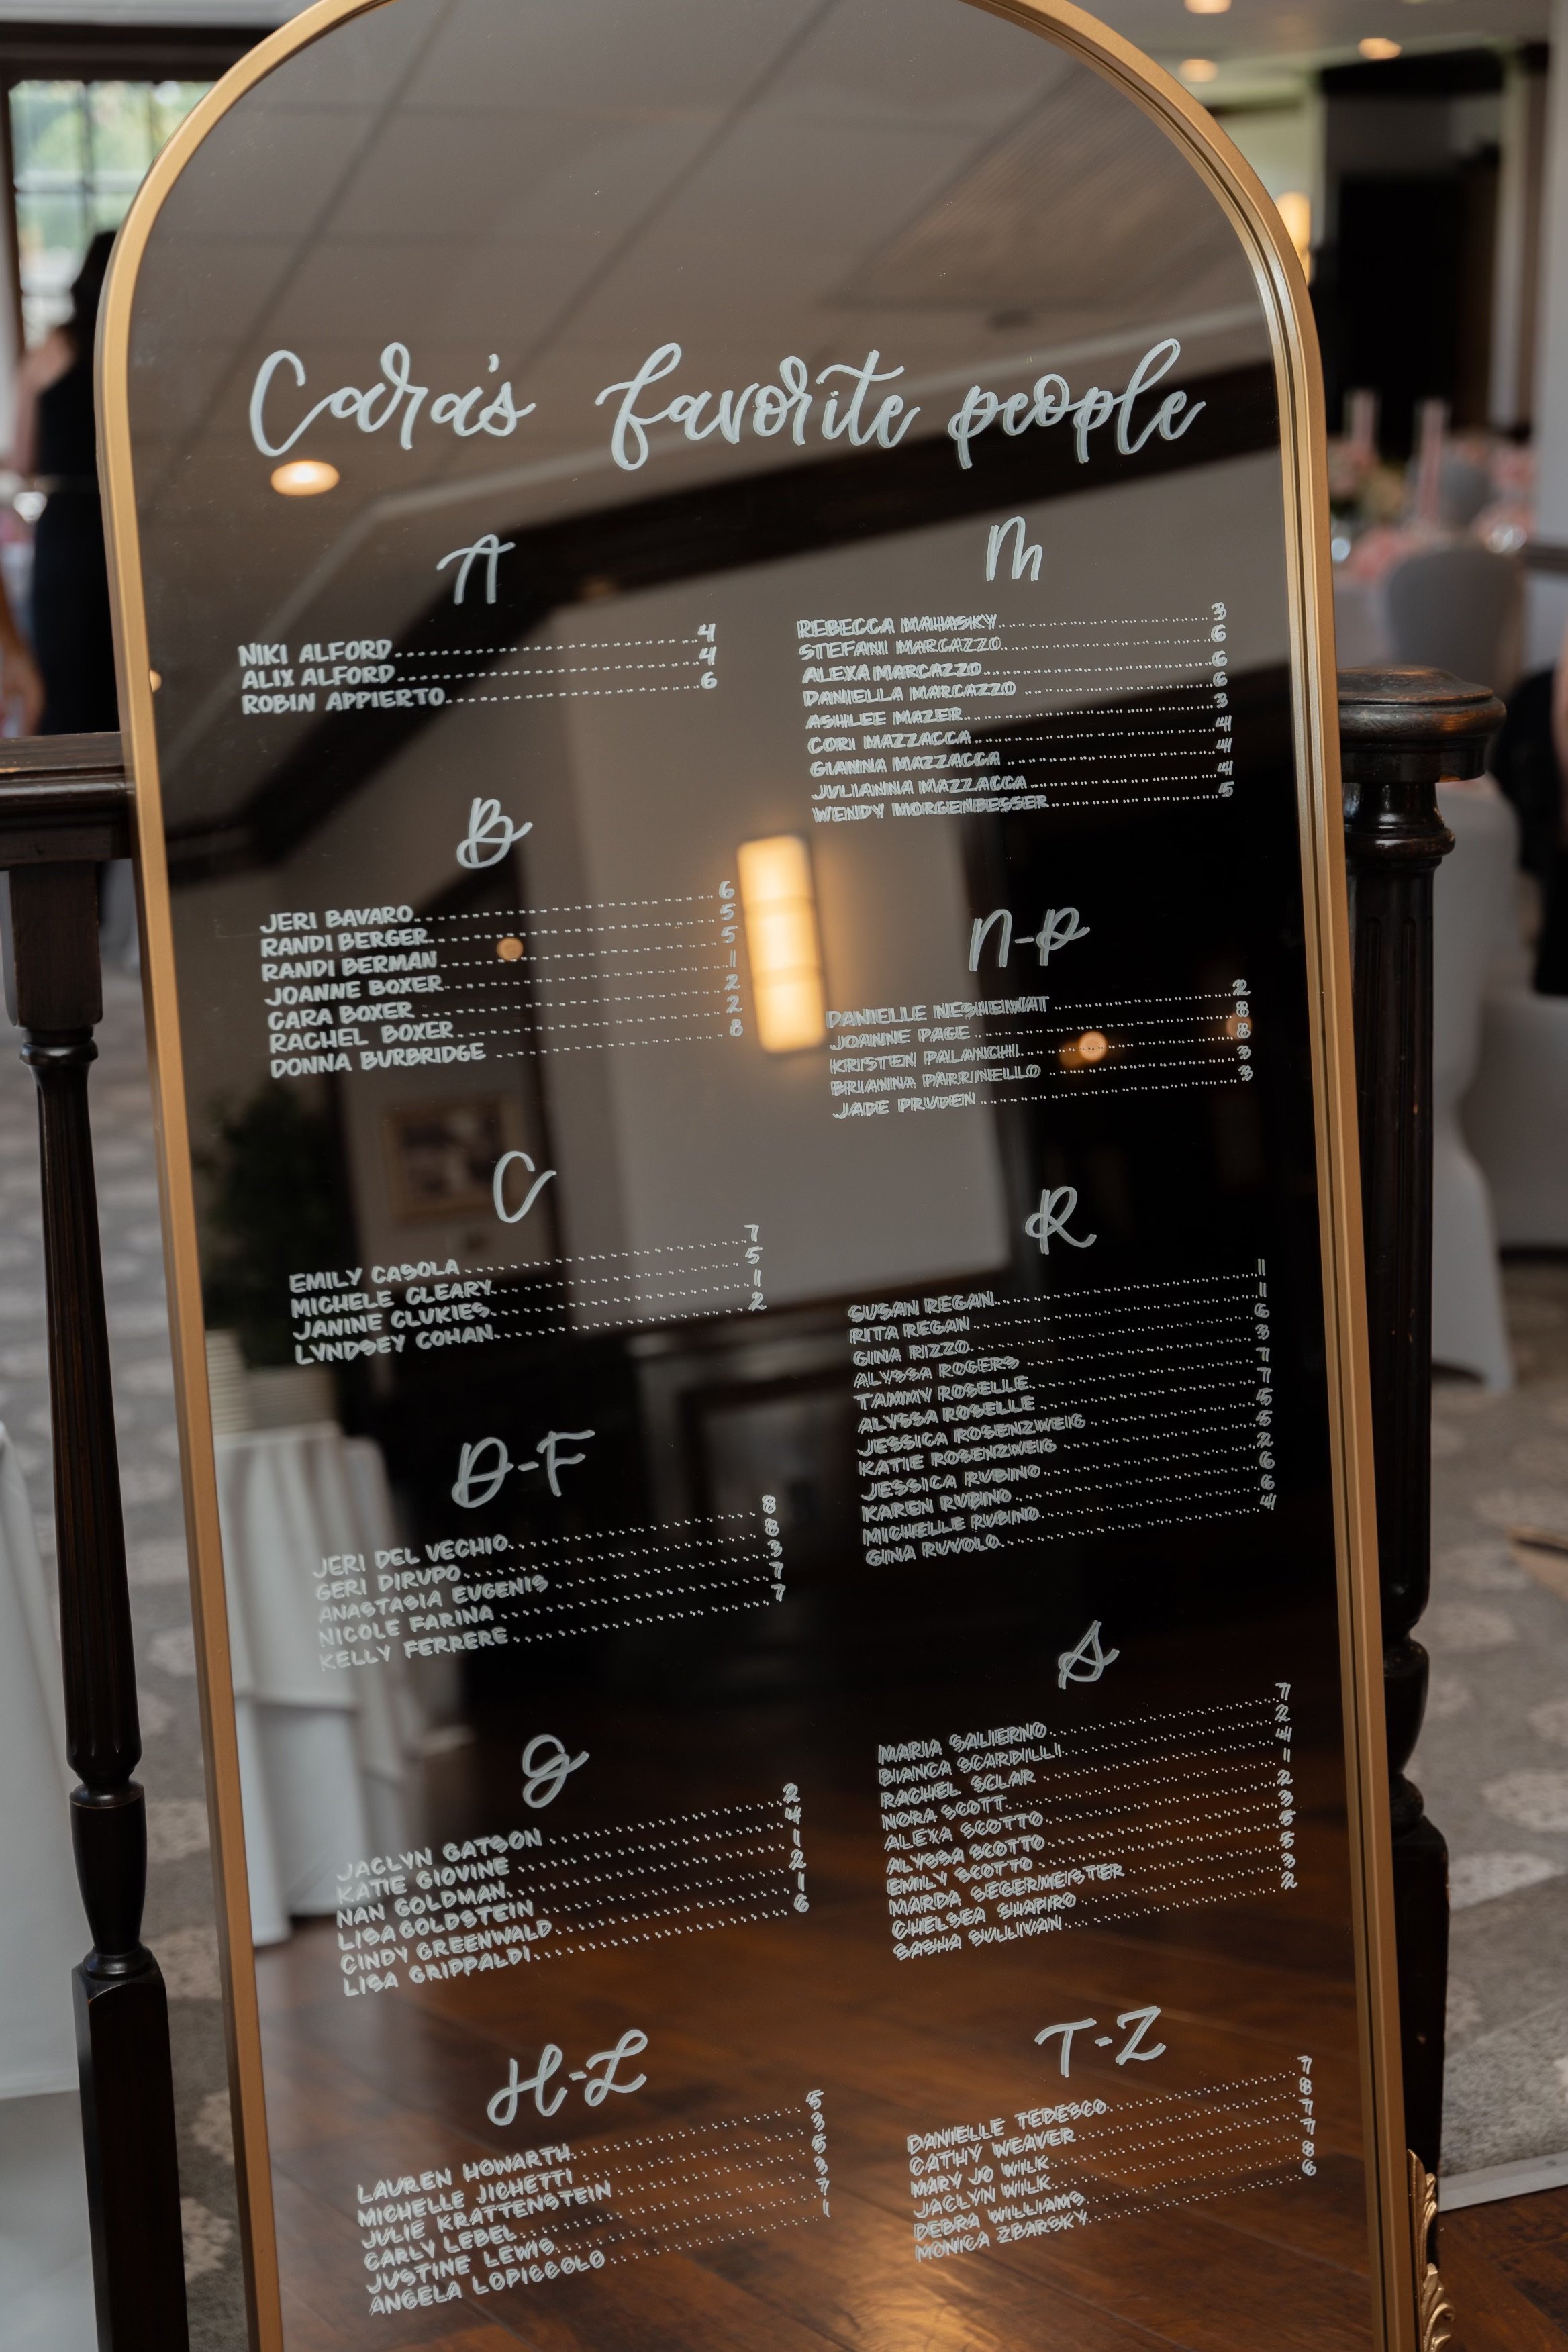 Cara's favorite people
A
NIKI ALFORD 4
ALIX ALFORD 4
ROBIN APPIERTO 6
B
JERI BAVARO 6
RANDI BERGER 5
RANDI BERMAN 5
JOANNE BOXER 1
CARA BOXER 2
RACHEL BOXER 2
DONNA BURBRIDGE 8
C
EMILY CASOLA 7
MICHELE CLEARY 5
JANINE CLUKIES 1
LYNDSEY COHAN 2
D-F
JERI DEL VECHIO 8
GERI DIRUPO 8
ANASTASIA EUGENIS 3
NICOLE FARINA 7
KELLY FERRERE 7
G
JACLYN GATSON 2
KATIE GIOVINE 4
NAN GOLDMAN 1
LISA GOLDSTEIN 2
CINDY GREENWALD 1
LISA GRIPPALDI 6
H-L
LAUREN HOWARTH 5
MICHELLE JICHETTI 3
JULIE KRATTENSTEIN 5
CARLY LEBEL 3
JUSTINE LEWIS 7
ANGELA LOPICCOLO 1
M
REBECCA MAHASKY 3
STEFANI MARCAZZO 6
ALEXA MARCAZZO 6
DANIELLA MARCAZZO 6
ASHLEE MAZER 3
CORI MAZZACCA 4
GIANNA MAZZACCA 4
JULIANNA MAZZACCA 4
WENDY MORGENBESSER 5
N-P
DANIELLE NESHEIWAT 2
JOANNE PAGE 8
KRISTEN PALANCHI 8
BRIANNA PARRINELLO 3
JADE PRUDEN 3
R
SUSAN REGAN 1
RITA REGAN 1
GINA RIZZO 6
ALYSSA ROGERS 3
TAMMY ROSELLE 7
ALYSSA ROSELLE 7
JESSICA ROSENZWEIG 5
KATIE ROSENZWEIG 5
JESSICA RUBINO 2
KAREN RUBINO 6
MICHELLE RUBINO 6
GINA RUVOLO 4
S
MARIA SALIERNO 7
BIANCA SCARDILLI 2
RACHEL SCLAR 4
NORA SCOTT 1
ALEXA SCOTTO 2
ALYSSA SCOTTO 3
EMILY SCOTTO 5
MARDA SEGERMEISTER 5
CHELSEA SHAPIRO 3
SASHA SULLIVAN 2
T-Z
DANIELLE TEDESCO 7
CATHY WEAVER 8
MARY JO WILK 7
JACLYN WILK 7
DEBRA WILLIAMS 8
MONICA ZBARSKY 6